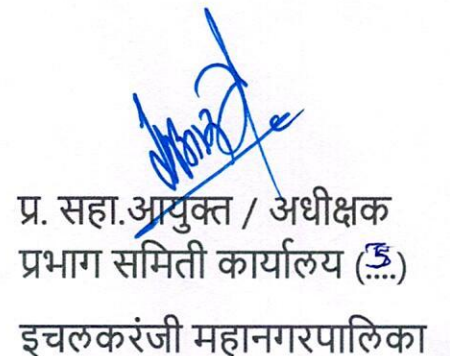 प्र. सहा.आयुक्त / अधीक्षक
प्रभाग समिती कार्यालय (....)
इचलकरंजी महानगरपालिका